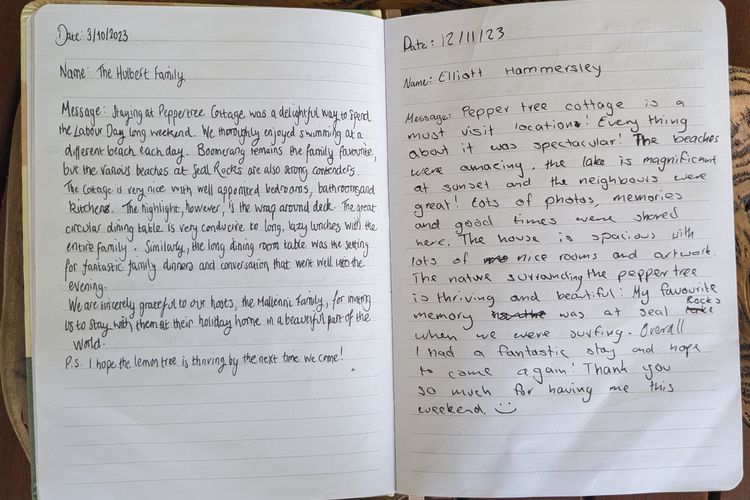 Date: 3/10/2023
Name: The Hulbert Family
Message: Staying at Peppertree Cottage was a delightful way to spend
the Labour Day long weekend. We thoroughly enjoyed swimming at a
different beach each day. Boomerang remains the family favourite,
but the various beaches at Seal Rocks are also strong contenders.
The Cottage is very nice with well appointed bedrooms, bathrooms and
kitchens. The highlight, however, is the wrap around deck. The great
circular dining table is very conducive to long, lazy lunches with the
entire family. Similarly, the long dining room table was the setting
for fantastic family dinners and conversation that went well into the
evening.
We are sincerely grateful to our hosts, the Mallennic Family, for inviting
us to stay with them at their holiday home in a beautiful part of the
world.
P.s. I hope the lemon tree is thriving by the next time we come!
Date: 12/11/23
Name: Elliott Hammersley
Message: Pepper tree cottage is a
must visit location! Every thing
about it was spectacular! The beaches
were amazing, the lake is magnificent
at sunset and the neighbours were
great! Lots of photos, memories
and good times were shared
here. The house is spacious with
lots of nice rooms and artwork.
The nature surrounding the pepper tree
is thriving and beautiful! My favourite
memory was at seal Rocks
when we were surfing. Overall
I had a fantastic stay and hope
to come again! Thank you
so much for having me this
weekend.